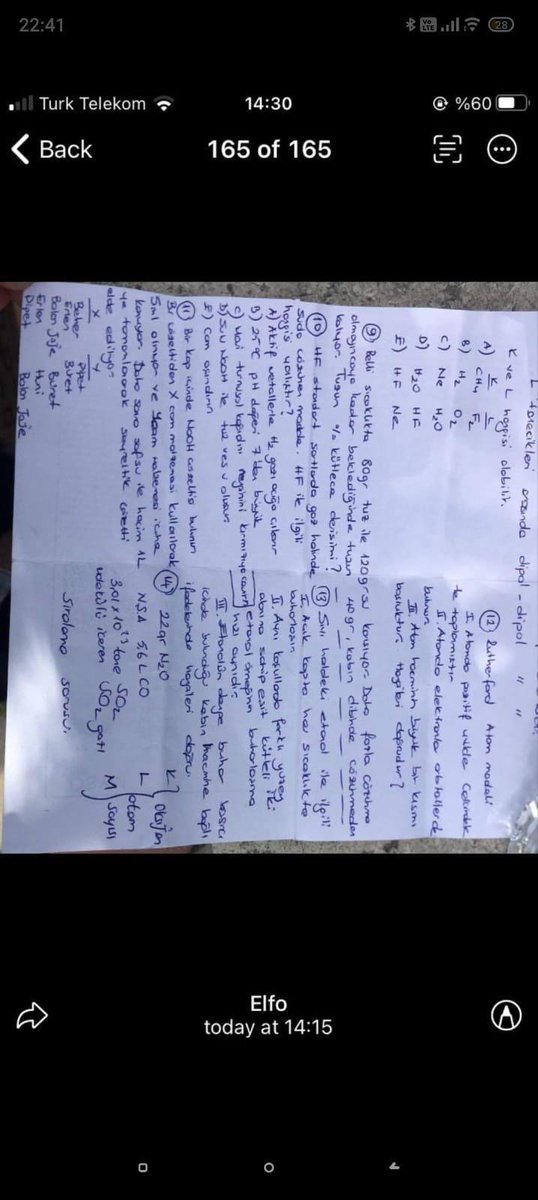 22:41
28
Turk Telekom
14:30
%60
Back
165 of 165
L tanecikleri arasında dipol dipol " "
K ve L hangisi olabilir.
K L
A) CH4 F2
B) H2 O2
C) Ne H2O
D) H2O HF
E) HF Ne
9 Belli sıcaklıkta 80gr tuz ile 120gr su konuyor. Daha fazla çözünme
olmayıncaya kadar beklediğinde tuzun 40 gr. kabın dibinde çözünmeden
kalıyor. Tuzun % kütlece derişimi?
10 HF standart şartlarda gaz halinde
Suda çözünen madde. HF ile ilgili
hangisi yanlıştır?
A) Aktif metallerle H2 gazı açığa çıkarır
B) 25°C pH değeri 7'den büyük
C) Mavi turnusol kağıdın rengini kırmızıya çevirir
D) Sulu NaOH ile tuz ve su oluşur
E) Cam aşındırır
11 Bir kap içinde NaOH çözeltisi bulunur
Bu çözeltiden X cam malzemesi kullanılarak
5ml alınıyor ve Y cam malzemesi içine
konuyor. Daha sonra safsu ile hacim 1L
ye tamamlanarak seyreltik çözelti
elde ediliyor
X Y
Beher Pipet
Erlen Büret
Balon Joje Büret
Erlen Huni
Pipet Balon Joje
12 Rutherford Atom modeli
I. Atomda pozitif yükler çekirdek
te toplanmıştır
II. Atomda elektronlar orbitallerde
bulunur
III. Atom hacminin büyük bir kısmı
boşluktur. Hangileri doğrudur?
13 Sıvı haldeki etanol ile ilgili
I. Açık kapta her sıcaklıkta
buharlaşır
II. Aynı koşullarda farklı yüzey
alanına sahip eşit kütleli iki
etanol örneğinin buharlaşma
hızı aynıdır.
III. Etanolün denge buhar basıncı
içinde bulunduğu kabın hacmine bağlı
ifadelerinde hangileri doğru.
14 22gr N2O K
NŞA 5,6 L CO L
3,01x10²³ tane SO2
molekülü içeren SO2 gazı M
Oksijen
atom
sayısı
Sıralama sorusu.
Elfo
today at 14:15